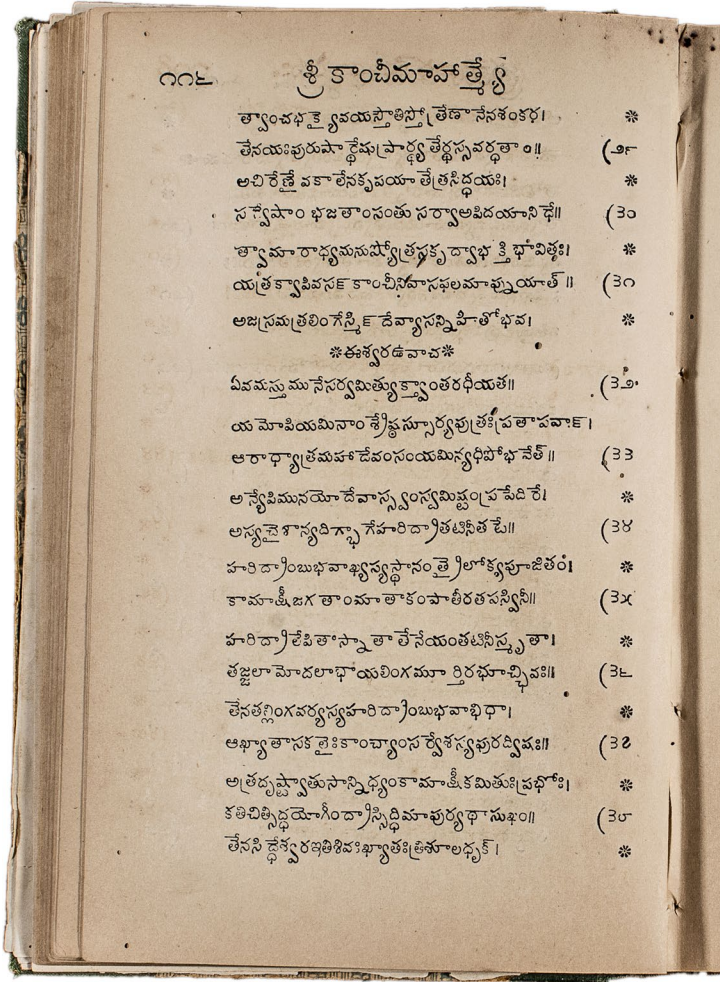 ౧౧౬ శ్రీ కాంచీమాహాత్మ్యే
త్వాంచభక్త్యైవయస్తౌతిస్తోత్రేణానేనశంకర। *
తేనయఃపురుషార్థేషుప్రార్థ్యతేర్థస్సవర్ధతాం॥ (౨౯
అచిరేణైవకాలేనకృపయాతేత్రసిద్ధయః। *
సర్వేషాం భజతాంసంతు సర్వాఅపిదయానిధే॥ (౩౦
త్వామారాధ్యమనుష్యోత్రసకృద్వాభక్తిభావితః। *
యత్రక్వాపివసన్ కాంచీనివాసఫలమాప్నుయాత్॥ (౩౧
అజస్రమత్రలింగేస్మిన్ దేవ్యాసన్నిహితోభవ। *
*ఈశ్వరఉవాచ*
ఏవమస్తుమునేసర్వమిత్యుక్త్వాంతరధీయత॥ (౩౨
యమోపియమినాంశ్రేష్ఠస్సూర్యపుత్రఃప్రతాపవాన్।
ఆరాధ్యాత్రమహాదేవంసంయమిన్యధిపోభవేత్॥ (౩౩
అన్యేపిమునయోదేవాస్స్వంస్వమిష్టంప్రపేదిరే। *
అస్యచైశాన్యదిగ్భాగేహరిద్రాతటినీతటే॥ (౩౪
హరిద్రాంబుభవాఖ్యస్యస్థానంత్రైలోక్యపూజితం। *
కామాక్షీజగతాంమాతాకంపాతీరతపస్వినీ॥ (౩౫
హరిద్రాలేపితాస్నాతాతేనేయంతటినీస్మృతా। *
తజ్జలామోదలాభాయలింగమూర్తిరభూచ్ఛివః॥ (౩౬
తేనతల్లింగవర్యస్యహరిద్రాంబుభవాభిధా। *
ఆఖ్యాతాసకలైఃకాంచ్యాంసర్వేశస్యపురద్విషః॥ (౩౭
అత్రదృష్ట్వాతుసాన్నిధ్యంకామాక్షీకమితుఃప్రభోః। *
కతిచిత్సిద్ధయోగీంద్రాస్సిద్ధిమాపుర్యథాసుఖం॥ (౩౮
తేనసిద్ధేశ్వరఇతిశివఃఖ్యాతఃత్రిశూలధృక్। *